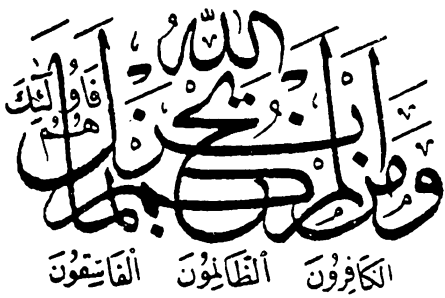 وَمَن لَّمْ يَحْكُم بِمَا أَنزَلَ اللَّهُ
فَأُولَٰئِكَ هُمُ
الكَافِرُونَ الظَّالِمُونَ الفَاسِقُونَ